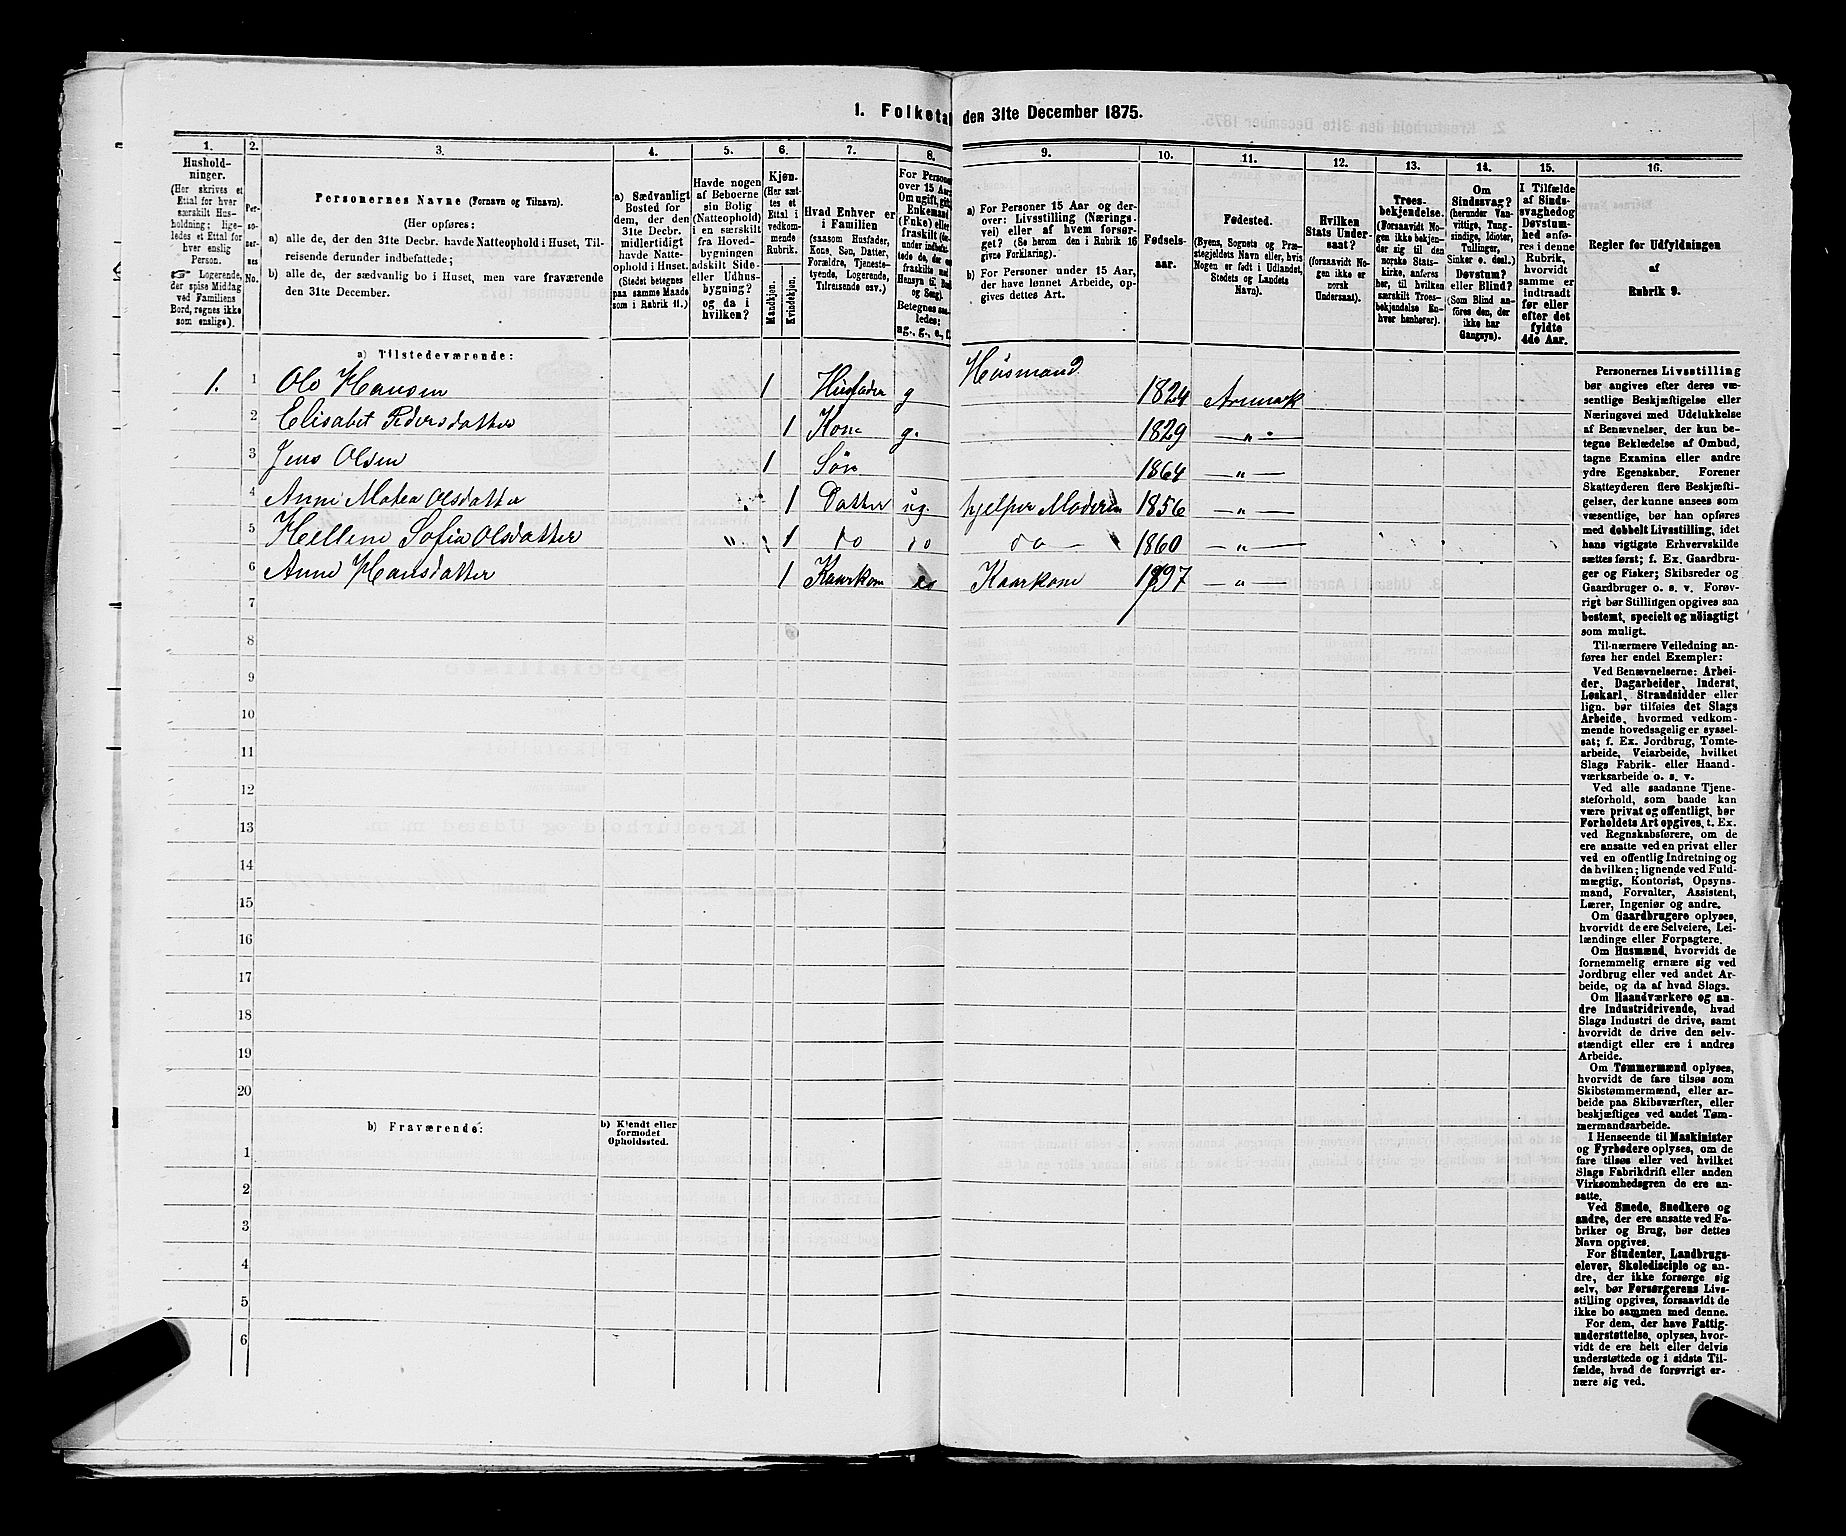 1. Folketal den 31te December 1875.
1.
Hushold-
ninger.
(Her skrives et
Ettal for hver
særskilt Hus-
holdning; lige-
ledes et Ettal for
hver enslig
Person.
☞ Logerende,
der spise Middag
ved Familiens
Bord, regnes ikke
som enslige).
2.
Per-
so-
ner-
nes
No.
3.
Personernes Navne (Fornavn og Tilnavn).
(Her opføres:
a) alle de, der den 31te Decbr. havde Natteophold i Huset, Til-
reisende derunder indbefattede;
b) alle de, der sædvanlig bo i Huset, men vare fraværende
den 31te December.
4.
a) Sædvanligt
Bosted for
dem, der den
31te Decbr.
midlertidigt
havde Natte-
ophold i Huset.
(Stedet betegnes
paa samme Maade
som i Rubrik 11.)
5.
Havde nogen
af Beboerne
sin Bolig
(Natteophold)
i en særskilt
fra Hoved-
bygningen
adskilt Side-
eller Udhus-
bygning?
og da i
hvilken?
6.
Kjøn.
(Her sæt-
tes et
Ettal i
vedkom-
mende
Rubrik.
Mandkjøn.
Kvindekjøn.
7.
Hvad Enhver er
i Familien
(saasom Husfader,
Kone, Søn, Datter,
Forældre, Tjeneste-
tyende, Logerende,
Tilreisende osv.)
8.
For Personer
over 15 Aar
Om ugift, gift,
Enkemand
(Enke) eller
fraskilt
Betegnes saa-
ledes:
ug., g., e., f.
9.
a) For Personer 15 Aar og der-
over: Livsstilling (Nærings-
vei) eller af hvem forsør-
get? (Se herom den i Rubrik 16
givne Forklaring).
b) For Personer under 15 Aar,
der have lønnet Arbeide, op-
gives dettes Art.
10.
Fødsels-
aar.
11.
Fødested.
(Byens, Sognets og Præ-
stegjeldets Navn eller, hvis
Nogen er født i Udlandet,
Stedets og Landets
Navn).
12.
Hvilken
Stats Under-
saat?
(forsaavidt No-
gen ikke er
norsk
Undersaat).
13.
Troes-
bekjendelse.
(Forsaavidt No-
gen ikke bekjen-
der sig til den
norske Stats-
kirke, anføres
her, til hvilken
særskilt Troes-
bekjendelse En-
hver henhører).
14.
Om
Sindssvag?
(herunder Van-
vittige, Tung-
sindige, Idioter,
Tullinger,
Sinker o. desl.)
Døvstum?
eller Blind?
(Som Blind an-
føres den, der
ikke har
Gangsyn).
15.
I Tilfælde
af Sinds-
svaghed og
Døvstum-
hed anfø-
res i denne
Rubrik,
hvorvidt
samme er
indtraadt
før eller
efter det
fyldte
4de Aar.
16.
Regler for Udfyldningen
af
Rubrik 9.
a) Tilstedeværende:
1. 1 Ole Hansen 1 Husfader g Húsmand 1824 Aremark
2 Elisabet Pedersdatter 1 Kone g. 1829 — „ —
3 Jens Olsen 1 Søn 1864 — „ —
4 Anne Matea Olsdatter 1 Datter ug. hjelper Moderen 1856 — „ —
5 Hellene Sofia Olsdatter „ 1 do do do — 1860 — „ —
6 Anne Hansdatter 1 Kaarkone Kaarkone 1797 — „ —
7
8
9
10
11
12
13
14
15
16
17
18
19
20
b) Fraværende:
b) Kjendt eller
formodet
Opholdssted.
1
2
3
4
5
6
Personernes Livsstilling
bør angives efter deres væ-
sentlige Beskjæftigelse eller
Næringsvei med Udelukkelse
af Benævnelser, der kun be-
tegne Beklædelse af Ombud,
tagne Examina eller andre
ydre Egenskaber. Forener
Skatteyderen flere Beskjæfti-
gelser, der kunne ansees som
væsentlige, bør han opføres
med dobbelt Livsstilling, idet
hans vigtigste Erhvervskilde
sættes først; f. Ex. Gaardbru-
ger og Fisker; Skibsreder og
Gaardbruger o. s. v. Forøv-
rigt bør Stillingen opgives saa
bestemt, specielt og nöiagtigt
som muligt.
Til nærmere Veiledning an-
føres her endel Exempler:
Ved Benævnelserne: Arbei-
der, Dagarbeider, Inderst,
Løskarl, Strandsidder eller
lign. bør tilføies det Slags
Arbeide, hvormed vedkom-
mende hovedsagelig er syssel-
sat; f. Ex. Jordbrug, Tomte-
arbeide, Veiarbeide, hvilket
Slags Fabrik- eller Haand-
værksarbeide o. s. v.
Ved alle saadanne Tjene-
steforhold, som baade kan
være privat og offentligt, bør
Forholdets Art opgives, t. Ex.
ved Regnskabsførere, om de
ere ansatte ved en privat eller
ved en offentlig Indretning og
da hvilken; lignende ved Fuld-
mægtig, Kontorist, Opsyns-
mand, Forvalter, Assistent,
Lærer, Ingeniør og andre.
Om Gaardbrugere oplyses,
hvorvidt de ere Selveiere, Lei-
lændinge eller Forpagtere.
Om Husmænd, hvorvidt de
fornemmelig ernære sig ved
Jordbrug eller ved andet Ar-
beide, og da af hvad Slags.
Om Haandværkere og an-
dre Industridrivende, hvad
Slags Industri de drive, samt
hvorvidt de drive den selv-
stændigt eller ere i andres
Arbeide.
Om Tømmermænd oplyses,
hvorvidt de fare tilsøs som
Skibstømmermænd, eller ar-
beide paa Skibsværfter, eller
beskjæftiges ved andet Tøm-
mermandsarbeide.
I Henseende til Maskinister
og Fyrbødere oplyses, om de
fare tilsøs eller ved hvilket
Slags Fabrikdrift eller anden
Virksomhedsgren de ere an-
satte.
Ved Smede, Snedkere og
andre, der ere ansatte ved Fa-
briker og Brug, bør dettes
Navn opgives.
For Studenter, Landbrugs-
elever, Skoledisciple og an-
dre, der ikke forsørge sig
selv, bør Forsørgerens Livs-
stilling opgives, forsaavidt de
ikke bo sammen med denne.
For dem, der have Fattig-
understøttelse, oplyses, hvor-
vidt de ere helt eller delvis
understøttede og i sidste Til-
fælde, hvad de forøvrigt er-
nære sig ved.